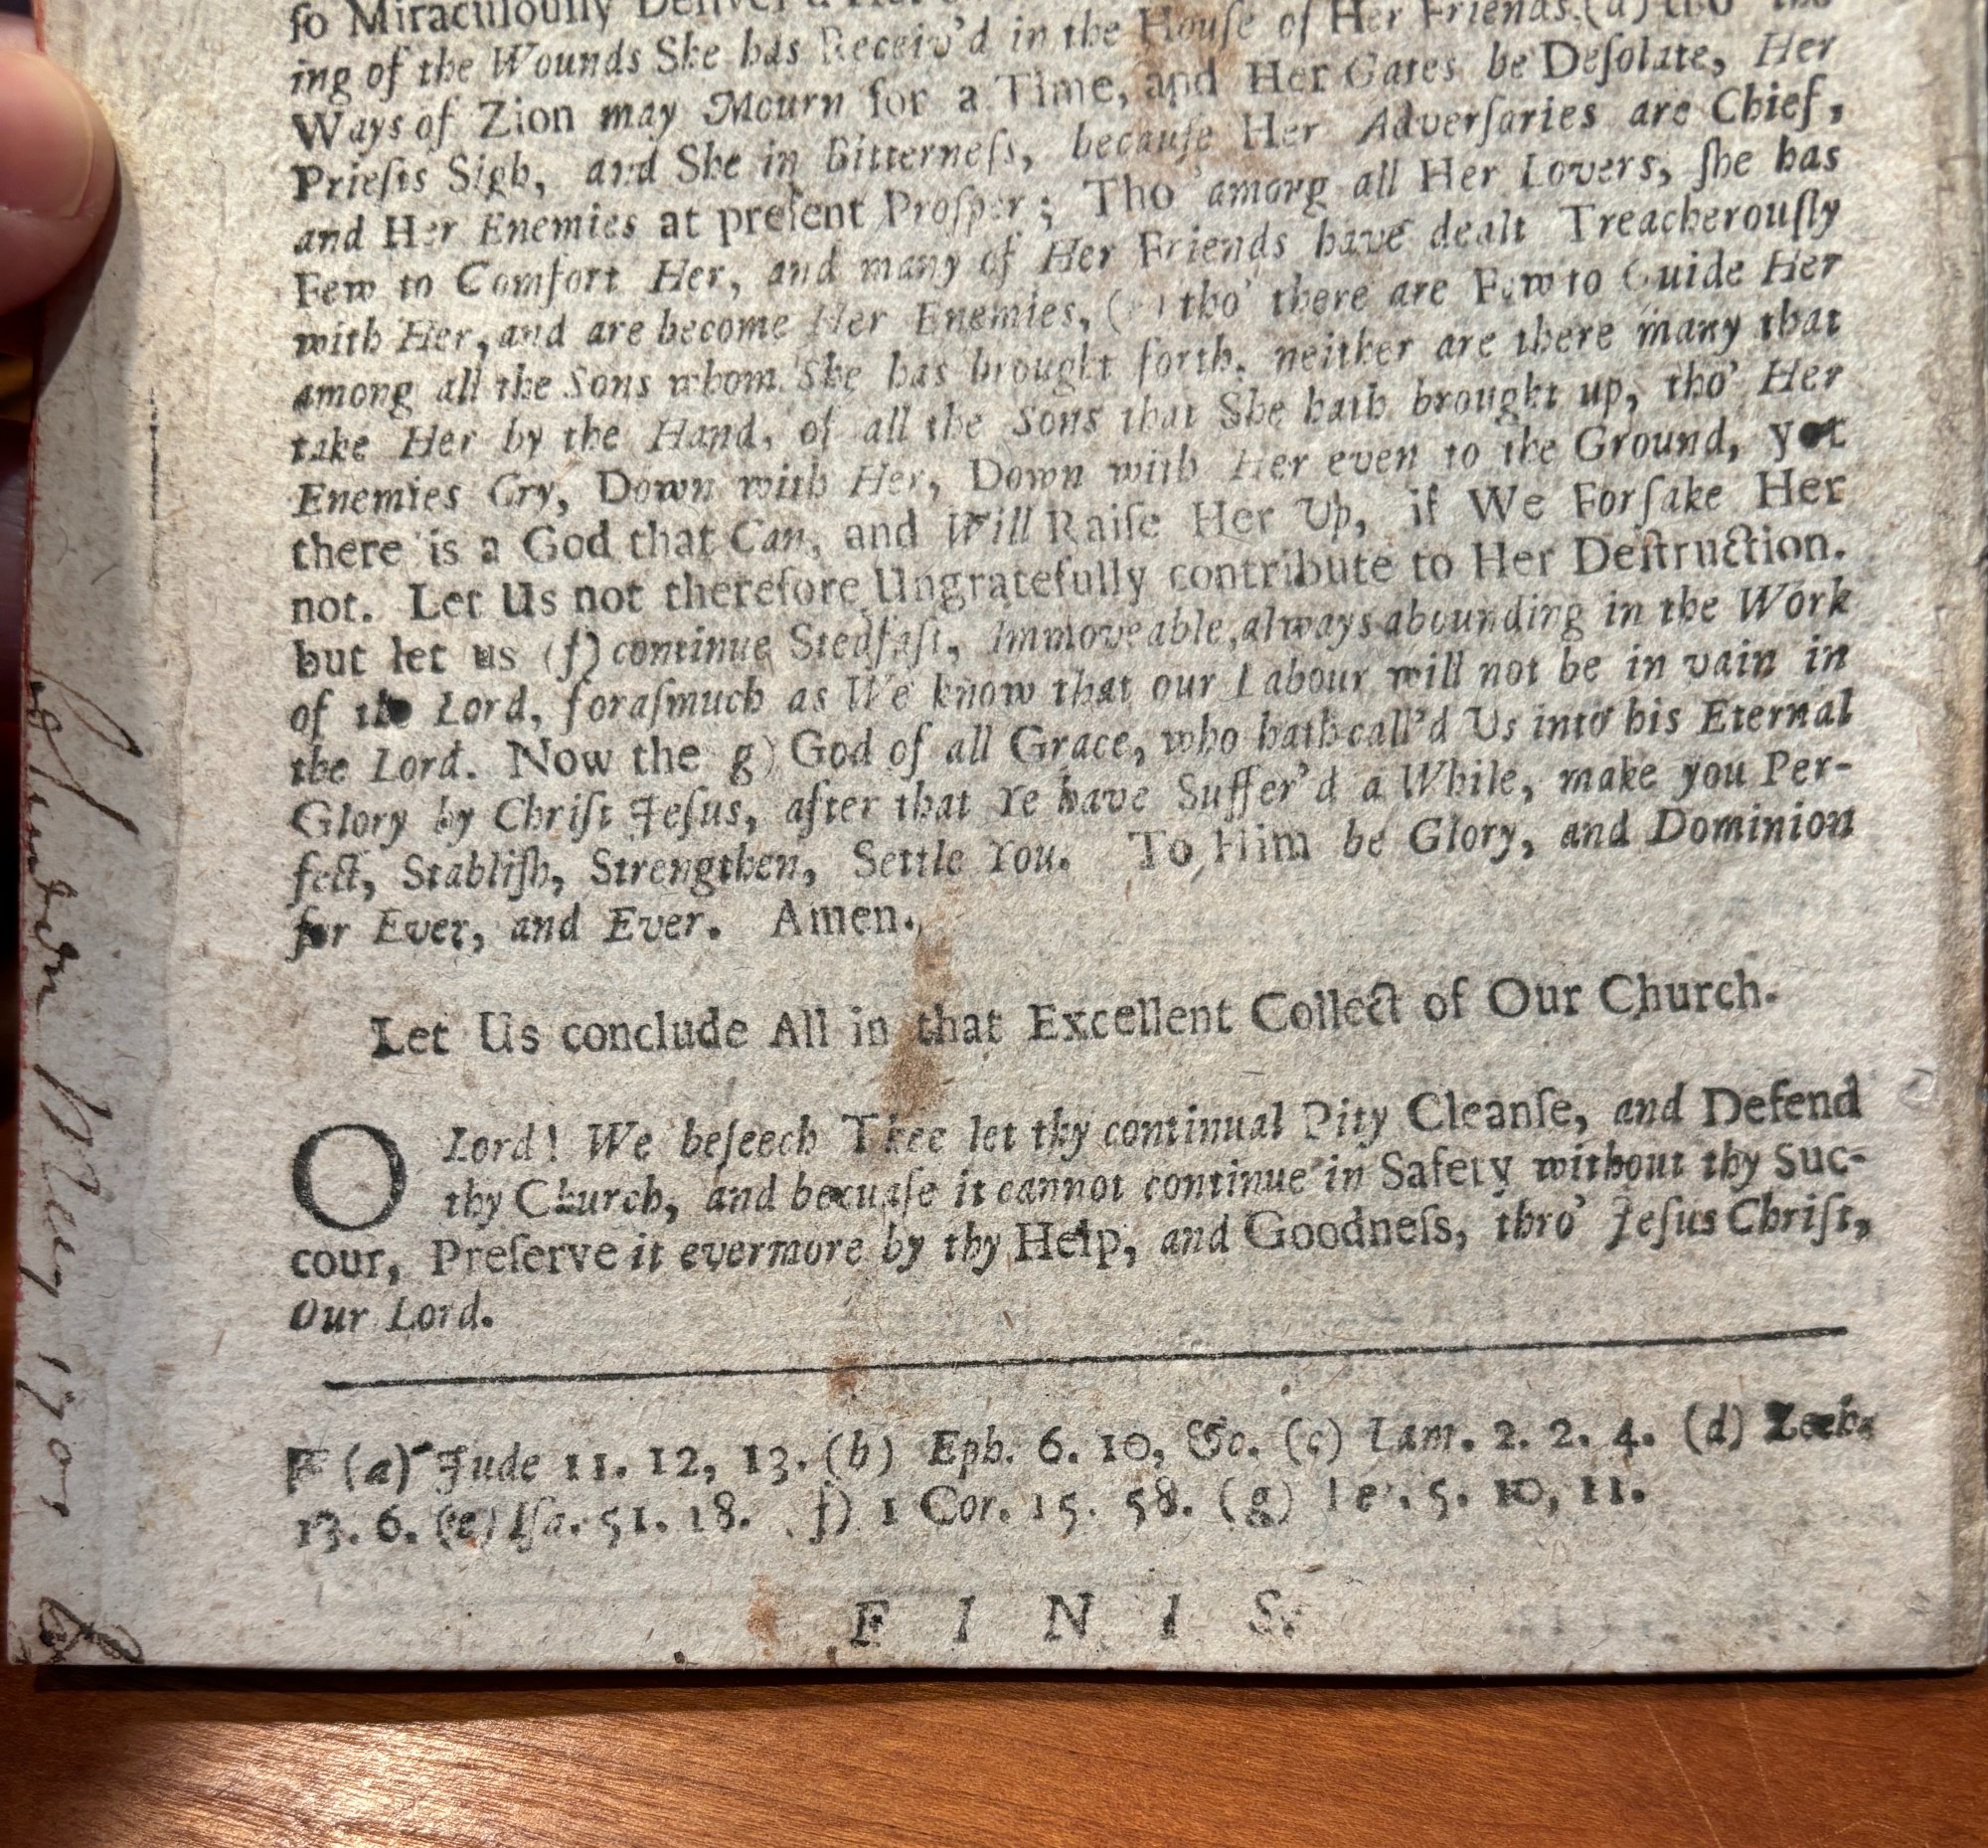 ſo Miraculouſly
ing of the Wounds She has Receiv'd in the Houſe of Her Friends. (d) tho' the
Ways of Zion may Mourn for a Time, and Her Gates be Deſolate, Her
Prieſts Sigh, and She in Bitterneſs, becauſe Her Adverſaries are Chief,
and Her Enemies at preſent Proſper; Tho' among all Her Lovers, ſhe has
Few to Comfort Her, and many of Her Friends have dealt Treacherouſly
with Her, and are become Her Enemies, ( ) tho' there are Few to Guide Her
among all the Sons whom She has brought forth, neither are there many that
take Her by the Hand, of all the Sons that She hath brought up, tho' Her
Enemies Cry, Down with Her, Down with Her even to the Ground, yet
there is a God that Can, and Will Raiſe Her Up, if We Forſake Her
not. Let Us not therefore Ungratefully contribute to Her Deſtruction.
but let us (f) continue Stedfaſt, Immoveable, always abounding in the Work
of the Lord, foraſmuch as We know that our Labour will not be in vain in
the Lord. Now the g) God of all Grace, who hath call'd Us into his Eternal
Glory by Chriſt Jeſus, after that Ye have Suffer'd a While, make you Per-
fect, Stabliſh, Strengthen, Settle You. To Him be Glory, and Dominion
for Ever, and Ever. Amen.
Let Us conclude All in that Excellent Collect of Our Church.
O Lord! We beſeech Thee let thy continual Pity Cleanſe, and Defend
thy Church, and becuaſe it cannot continue in Safety without thy Suc-
cour, Preſerve it evermore by thy Help, and Goodneſs, thro' Jeſus Chriſt,
Our Lord.
(a) Jude 11. 12, 13. (b) Eph. 6. 10, &c. (c) Lam. 2. 2. 4. (d) Zech.
13. 6. (e) Iſa. 51. 18. f) 1 Cor. 15. 58. (g) 5. 10, 11.
F I N I S.